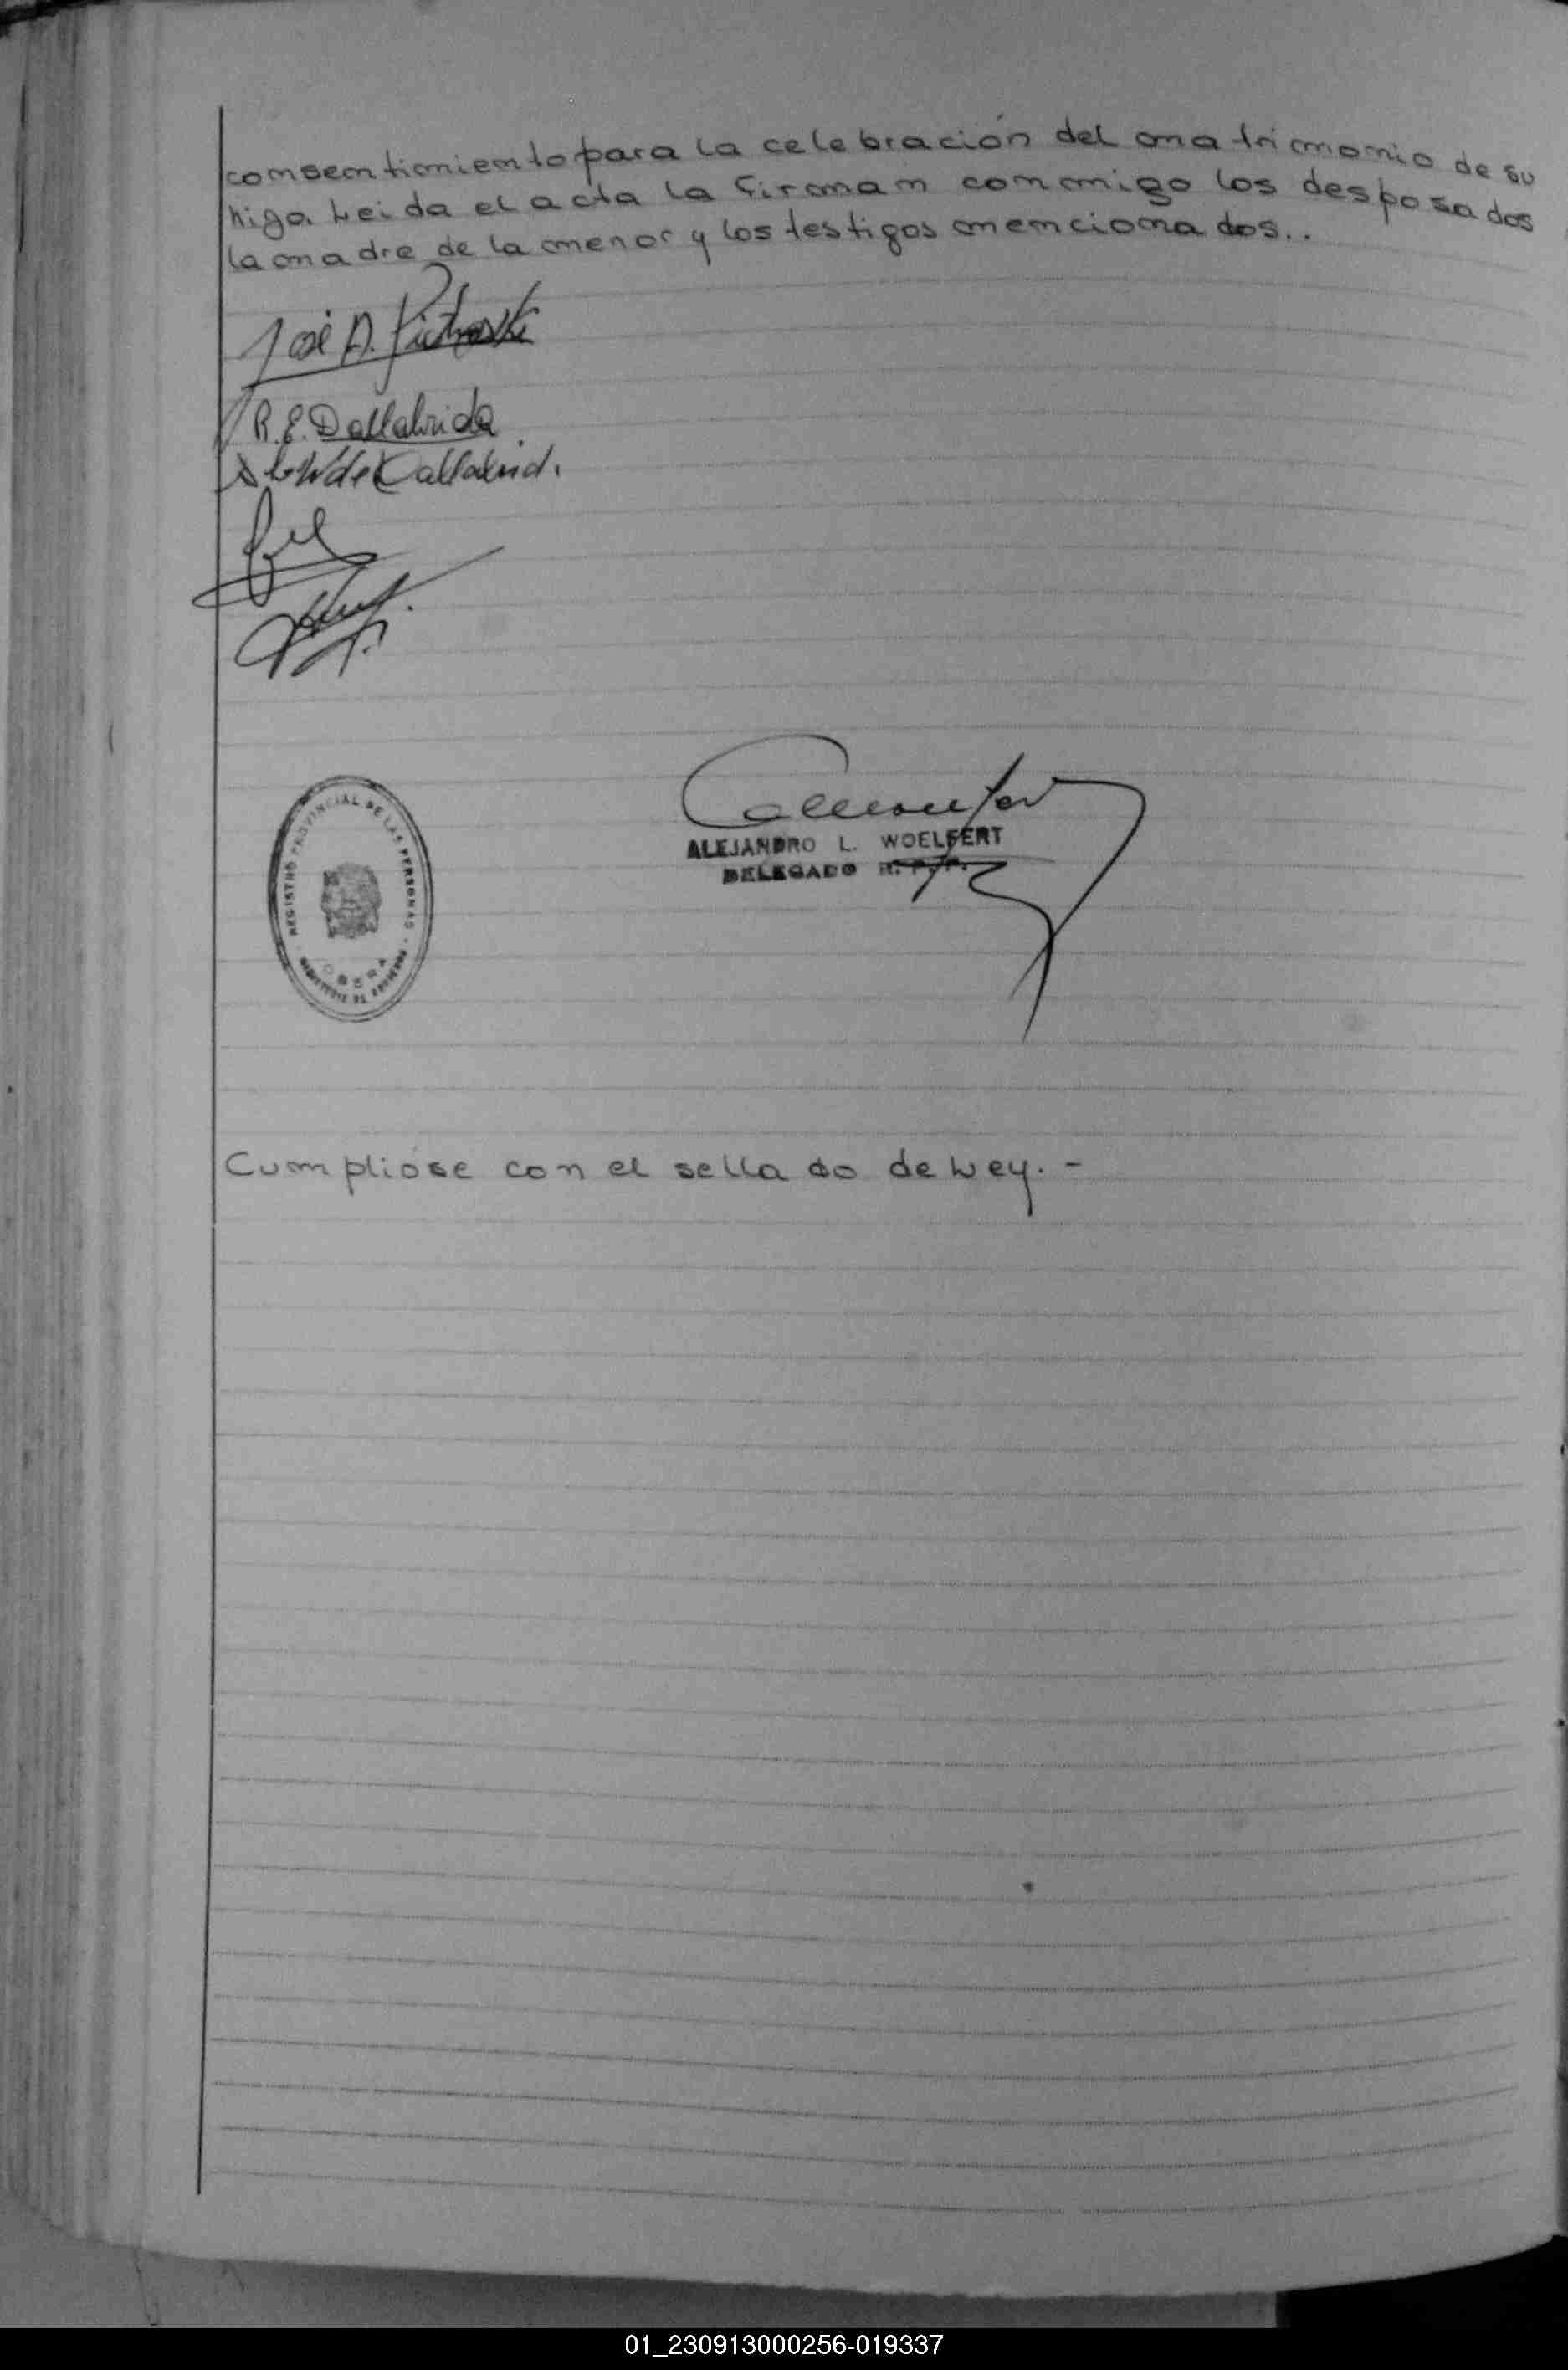 consentimiento para la celebración del matrimonio de su
hija Leida el acta la firman conmigo los desposados
la madre de la menor y los testigos mencionados..
José A.
R. E. Dallabrida
REGISTRO PROVINCIAL DE LAS PERSONAS
OBERA
MINISTERIO DE GOBIERNO
ALEJANDRO L. WOELFERT
DELEGADO R. P. P.
Cumplióse con el sellado de Ley. -
01_230913000256-019337